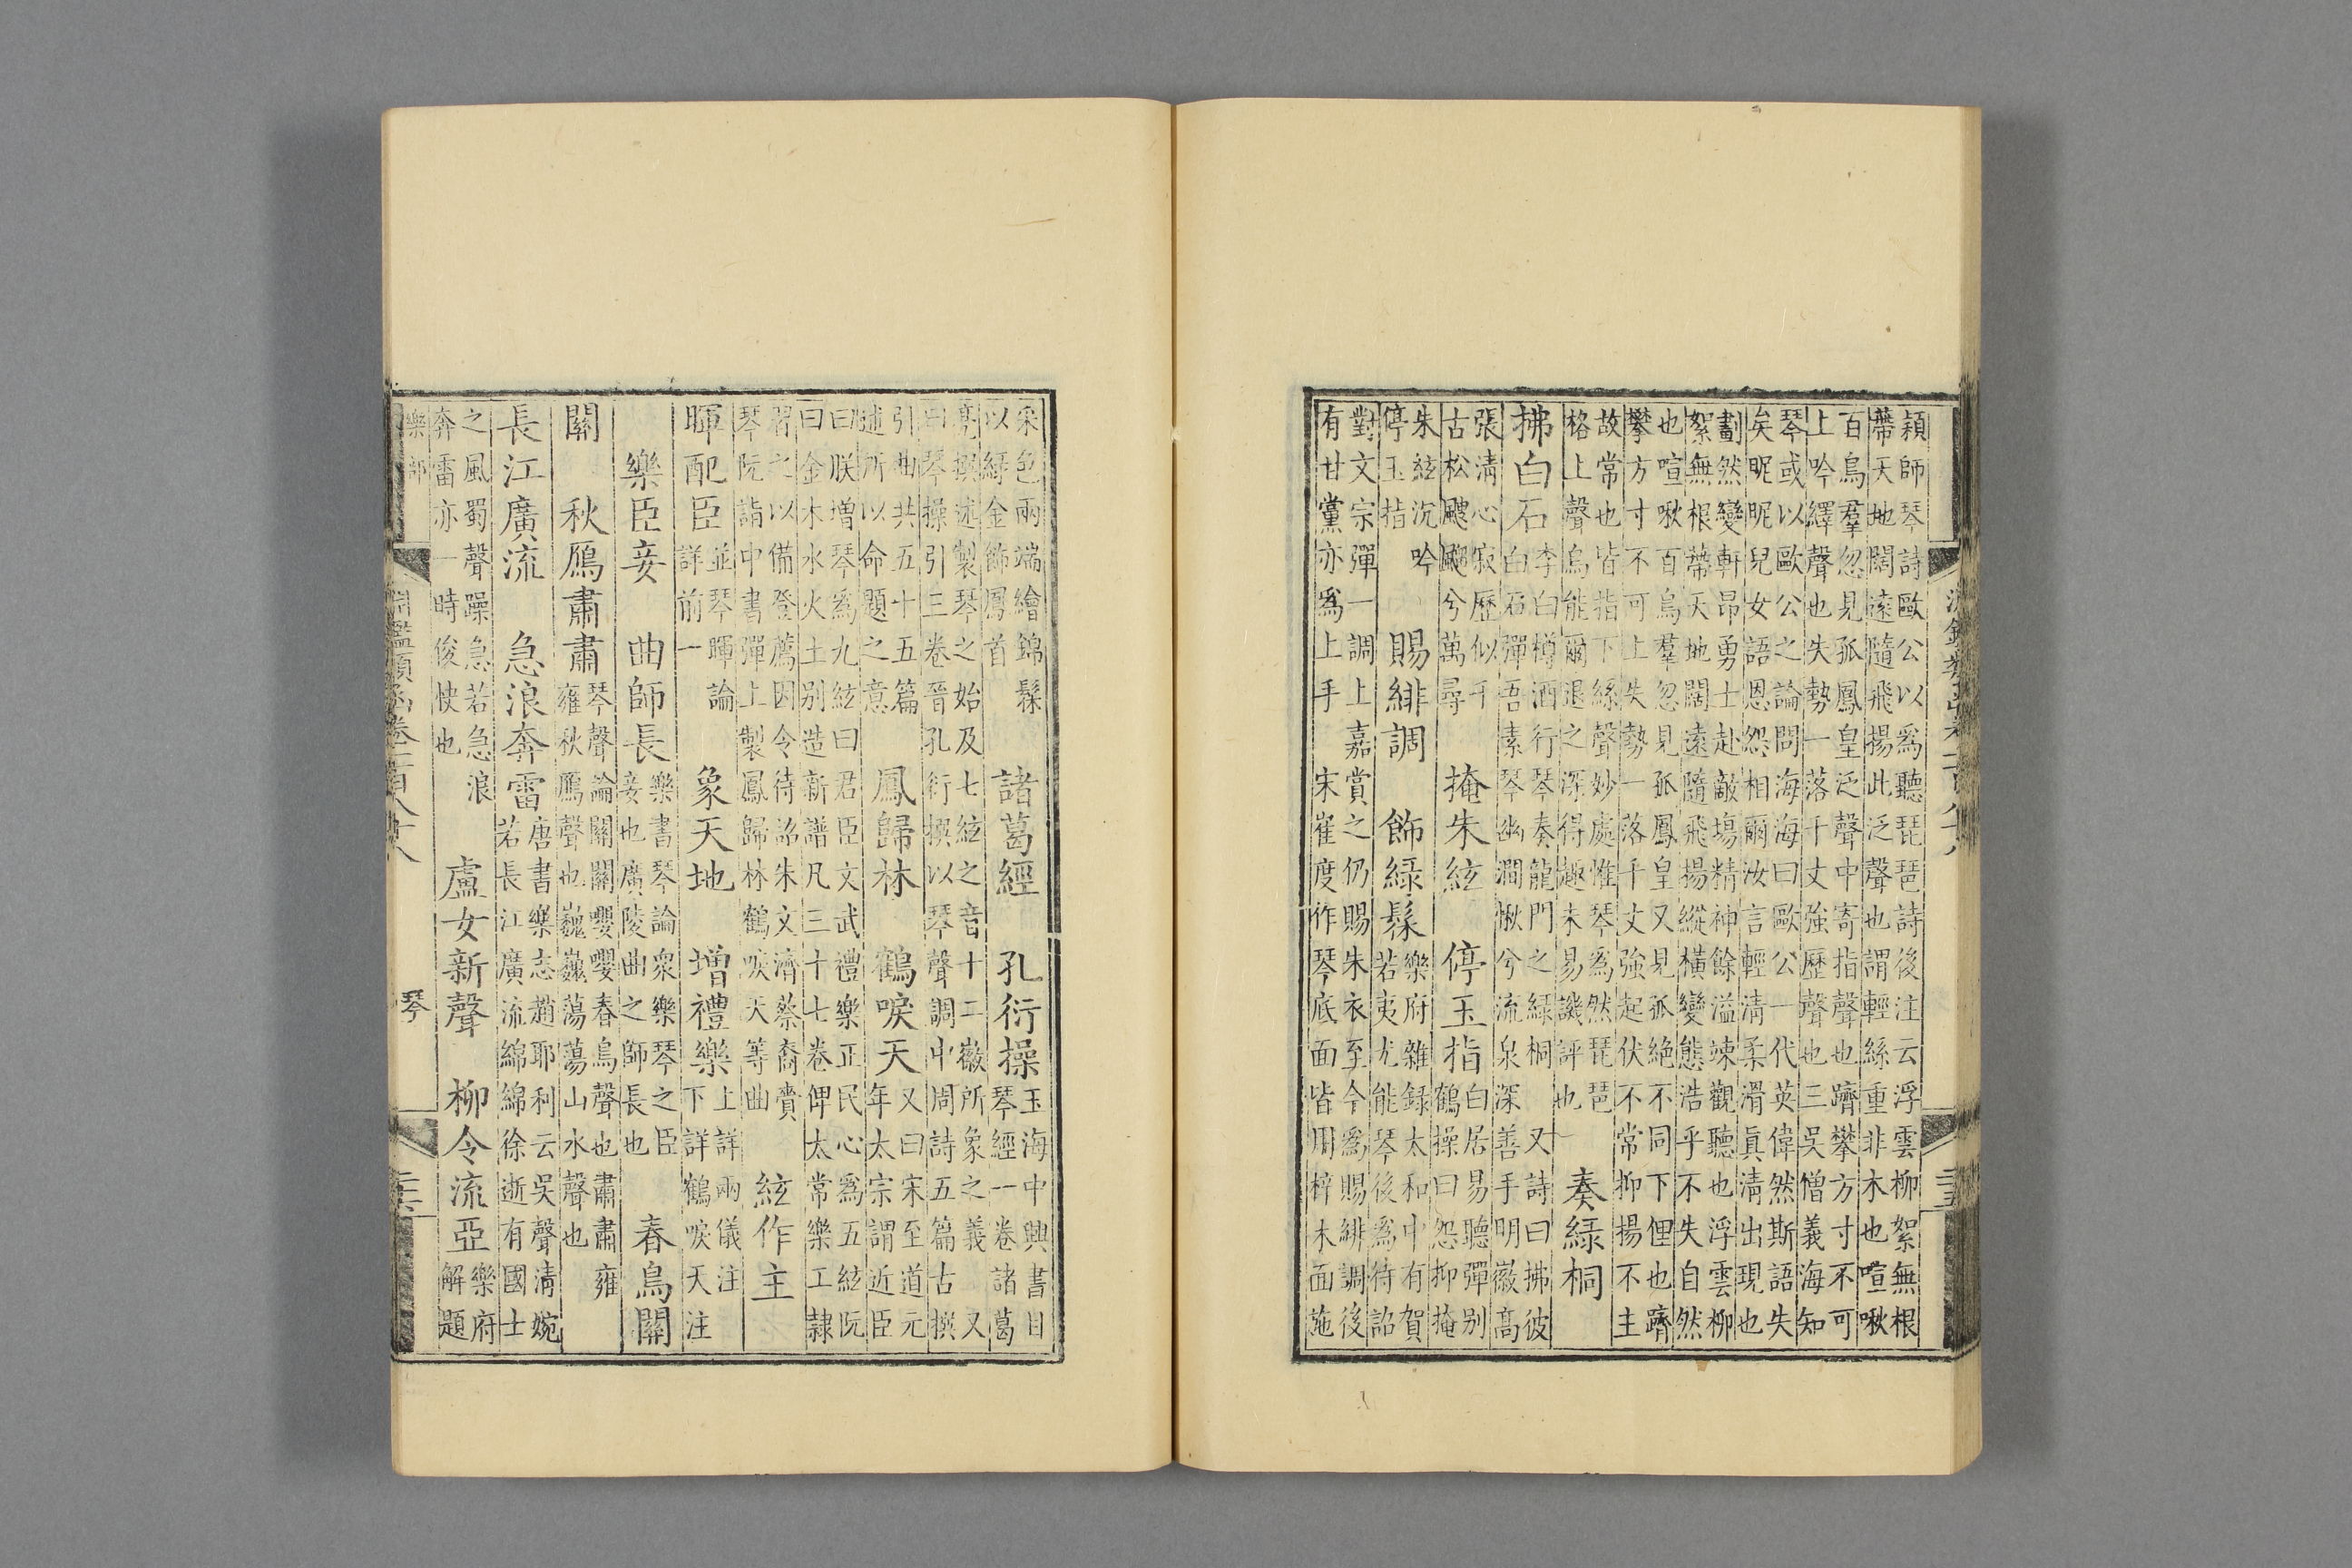 淵鑑類函卷一百八十八
二十五
穎師琴詩歐公以爲聽琵琶詩後注云浮雲柳絮無根
蔕天地闊遠隨飛揚此泛聲也謂輕絲重非木也喧啾
百鳥羣忽見孤鳳皇泛聲中寄指聲也躋攀方寸不可
上吟繹聲也失勢一落千丈強歷聲也三吳僧義海知
琴或以歐公之論問海海曰歐公一代英偉然斯語失
矣昵昵兒女語恩怨相爾汝言輕清柔滑眞清出現也
劃然變軒昂勇士赴敵塲精神餘溢竦觀聽也浮雲柳
絮無根蔕天地闊遠隨飛揚縱橫變態浩乎不失自然
也喧啾百鳥羣忽見孤鳳皇又見孤絶不同下俚也躋
攀方寸不可上失勢一落千丈強起伏不常抑揚不主
故常也皆指下絲聲妙處惟琴爲然琵琶
格上聲烏能爾退之深得趣未易譏評也
奏緑桐
又詩曰拂彼
善手明徽高
張淸心寂歷似千
古松颼飀兮萬尋
拂白石
李白樽酒行琴奏龍門之緑桐
白石彈吾素琴幽澗愀兮流泉深
掩朱絃
停玉指
白居易聽彈別
鶴操曰怨抑掩
朱絃沉吟
停玉指
賜緋調
飾緑髹
樂府雜録太和中有賀
若夷尤能琴後爲待詔
對文宗彈一調上嘉賞之仍賜朱衣至今爲賜緋調後
有甘黨亦爲上手
宋崔度作琴底面皆用梓木面施
采色兩端繪錦髹
以緑金飾鳳首
諸葛經
孔衍操
玉海中興書目
琴經一卷諸葛
亮撰述製琴之始及七絃之音十二徽所象之義又
曰琴操引三卷晉孔衍撰以琴聲調中周詩五篇古操
引曲共五十五篇
述所以命題之意
鳳歸林
鶴唳天
又曰宋至道元
年太宗謂近臣
曰朕增琴爲九絃曰君臣文武禮樂正民心爲五絃阮
曰金木水火土别造新譜凡三十七卷俾太常樂工隷
習之以備登薦因令待詔朱文濟蔡裔賷
琴阮詣中書彈上製鳳歸林鶴唳天等曲
絃作主
暉配臣
並琴暉論
詳前一
象天地
增禮樂
上詳兩儀注
下詳鶴唳天注
樂臣妾
曲師長
樂書琴論衆樂琴之臣
妾也廣陵曲之師長也
春鳥關
關
秋鴈肅肅
琴聲論關關嚶嚶春鳥聲也肅肅雍
雍秋鴈聲也巍巍蕩蕩山水聲也
長江廣流
急浪奔雷
唐書樂志趙耶利云吳聲淸婉
若長江廣流綿綿徐逝有國士
之風蜀聲躁急若急浪
奔雷亦一時俊快也
盧女新聲
柳令流亞
樂府
解題
樂部
淵鑑類函卷一百八十八
琴
二十六